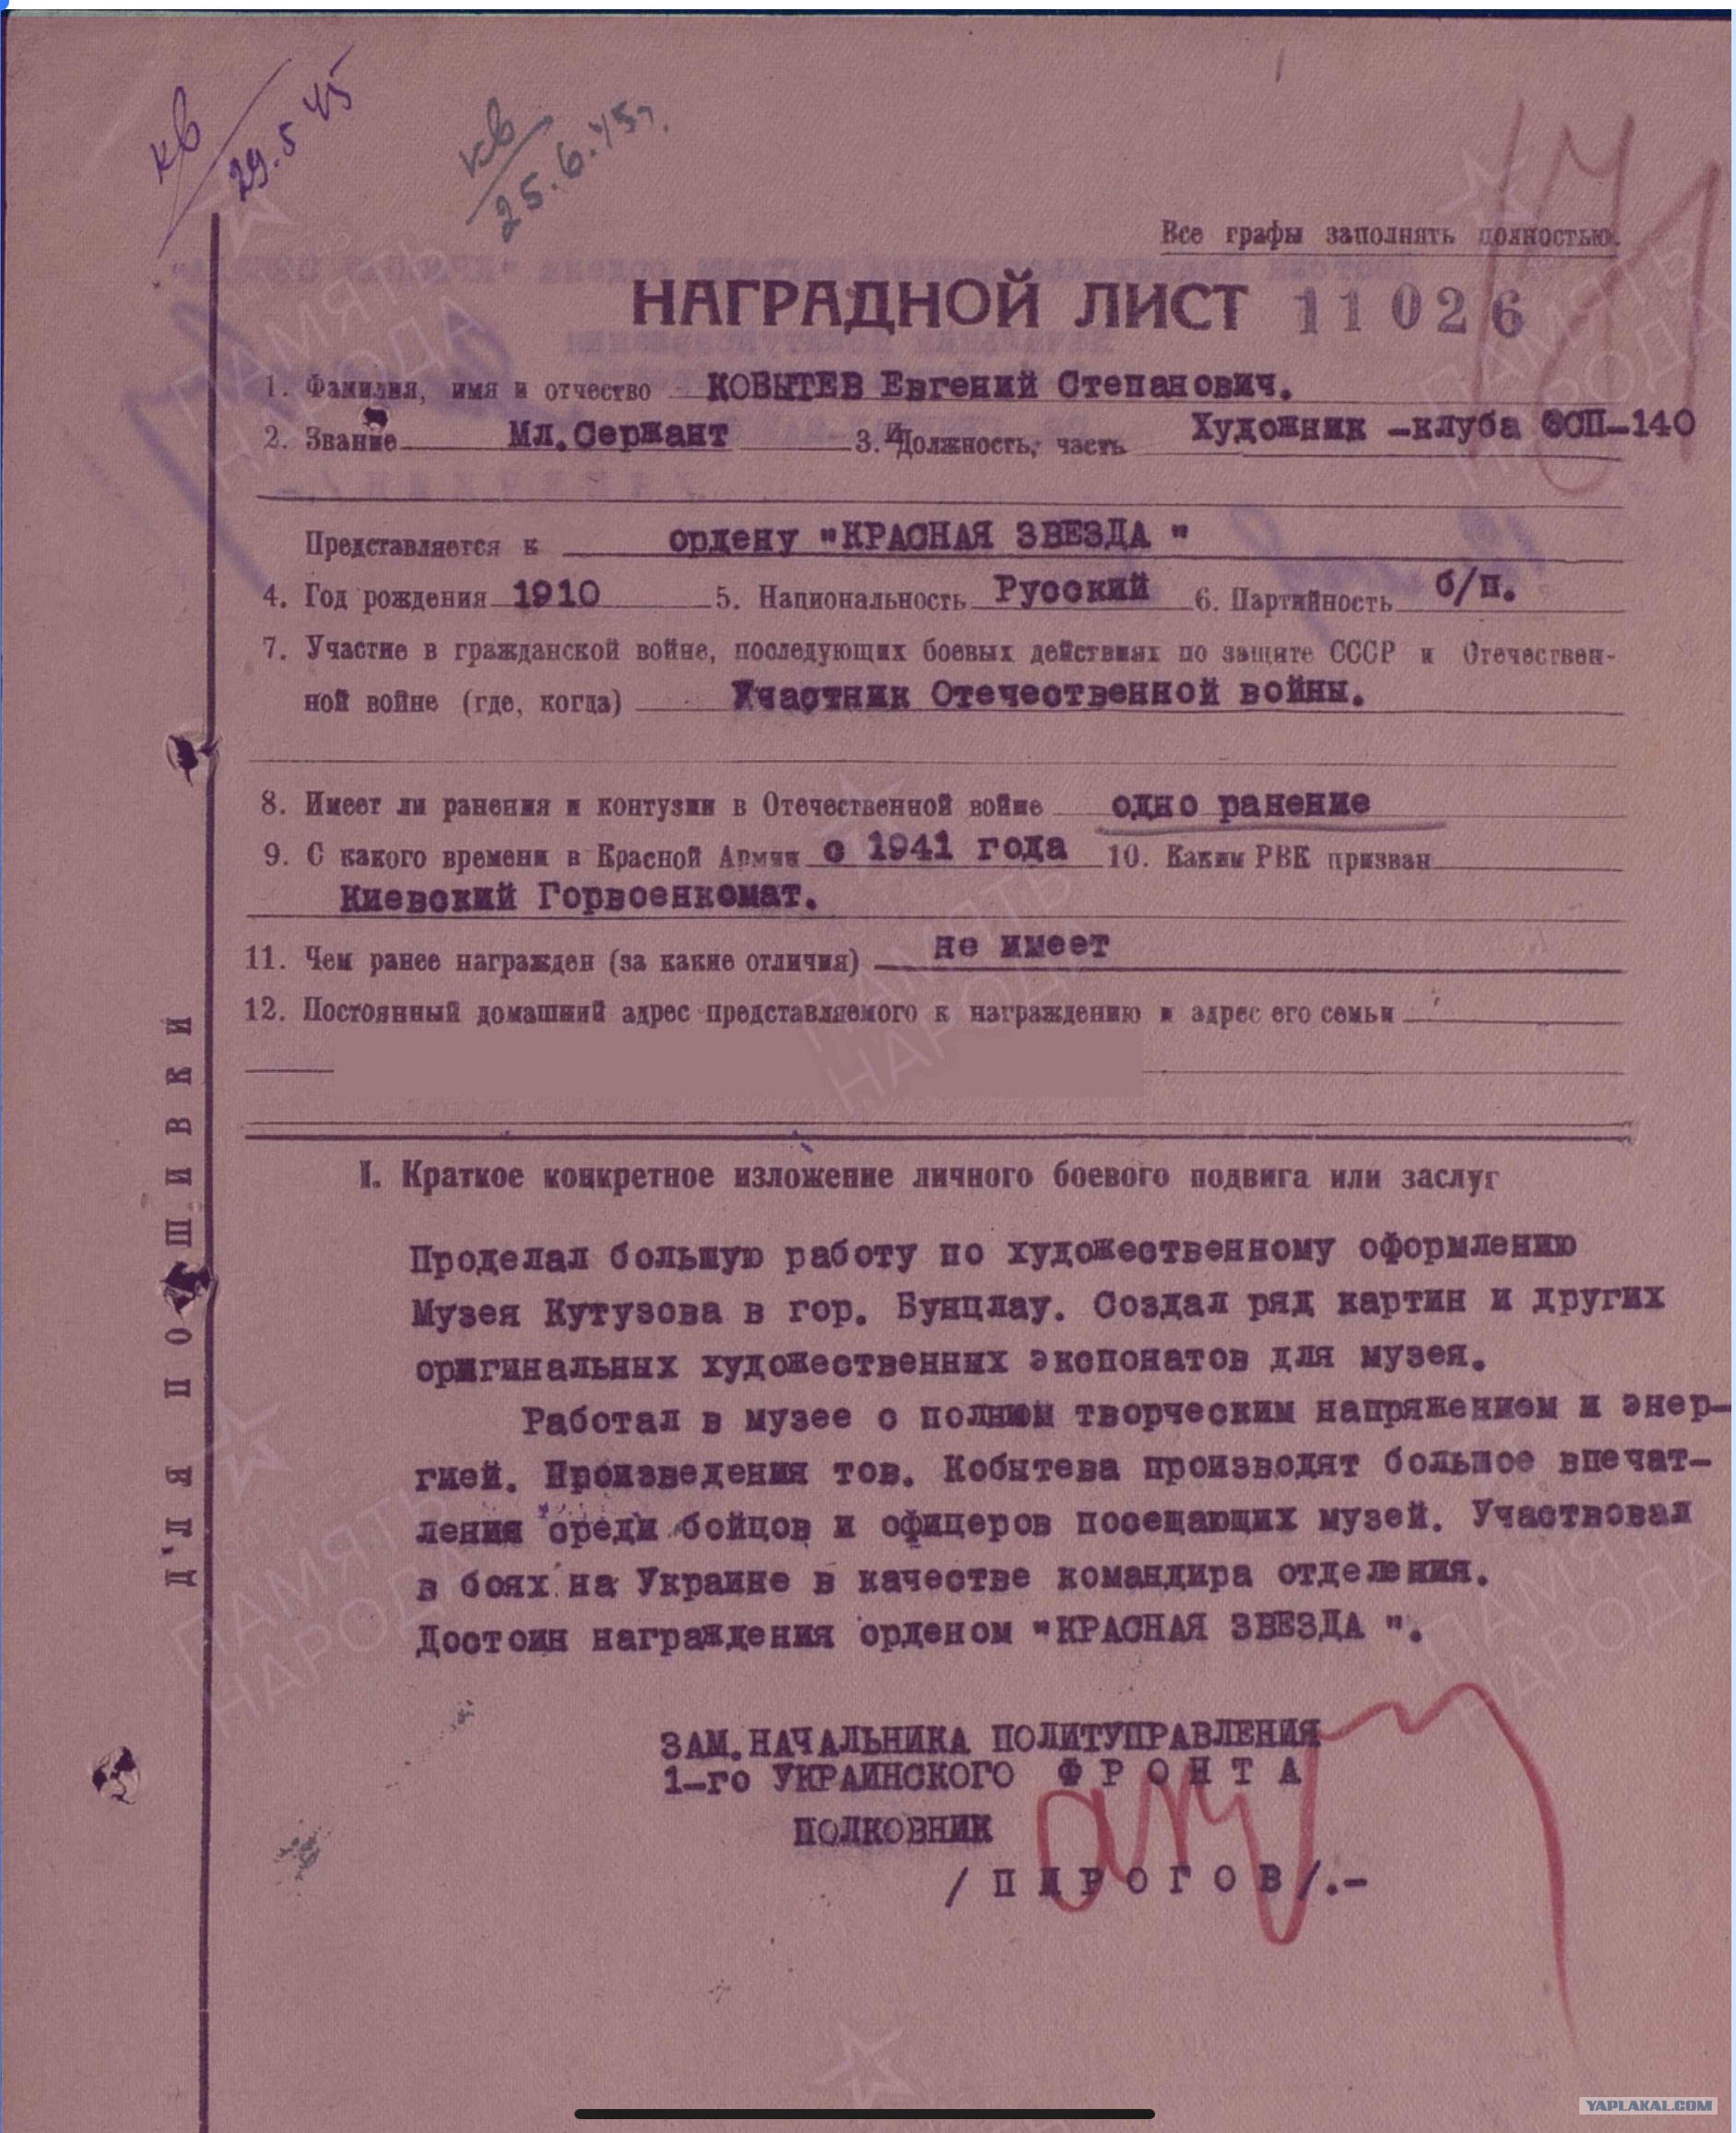 кв
29.5 45
кв
25.6.45г.
Все графы заполнять полностью.
НАГРАДНОЙ ЛИСТ 11026
1. Фамилия, имя и отчество КОБЫТЕВ Евгений Степанович.
2. Звание Мл.Сержант 3. Должность, часть Художник -клуба ОСП-140
Представляется к ордену "КРАСНАЯ ЗВЕЗДА "
4. Год рождения 1910 5. Национальность Русский 6. Партийность б/п.
7. Участие в гражданской войне, последующих боевых действиях по защите СССР и Отечествен-
ной войне (где, когда) Участник Отечественной войны.
8. Имеет ли ранения и контузии в Отечественной войне одно ранение
9. С какого времени в Красной Армии с 1941 года 10. Каким РВК призван
Киевский Горвоенкомат.
11. Чем ранее награжден (за какие отличия) не имеет
12. Постоянный домашний адрес представляемого к награждению и адрес его семьи
ДЛЯ ПОШИВКИ
I. Краткое конкретное изложение личного боевого подвига или заслуг
Проделал большую работу по художественному оформлению
Музея Кутузова в гор. Бунцлау. Создал ряд картин и других
оригинальных художественных экспонатов для музея.
Работал в музее с полным творческим напряжением и энер-
гией. Произведения тов. Кобытева производят большое впечат-
ления среди бойцов и офицеров посещающих музей. Участвовал
в боях на Украине в качестве командира отделения.
Достоин награждения орденом "КРАСНАЯ ЗВЕЗДА ".
ЗАМ.НАЧАЛЬНИКА ПОЛИТУПРАВЛЕНИЯ
1-го УКРАИНСКОГО ФРОНТА
ПОЛКОВНИК
/ПИРОГОВ/.-
ПАМЯТЬ НАРОДА
YAPLAKAL.COM